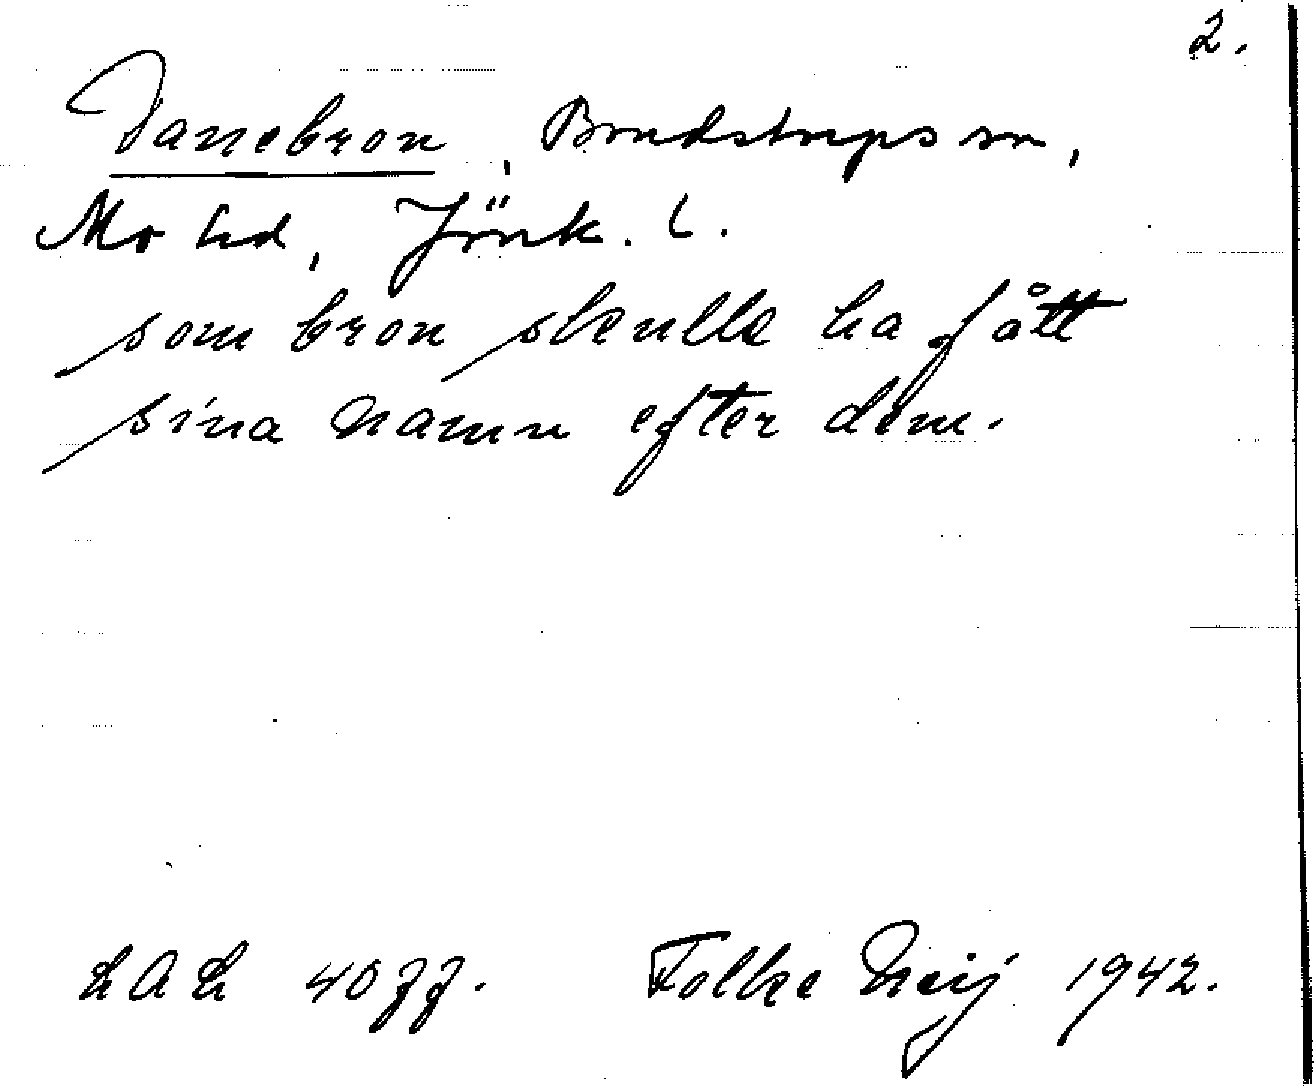 2.
Danebron, Bondstorps sn,
Mo hd, Jönk. l.
som bron skulle ha fått
sina namn efter dem.
LAL 4077. Folke Neij 1942.